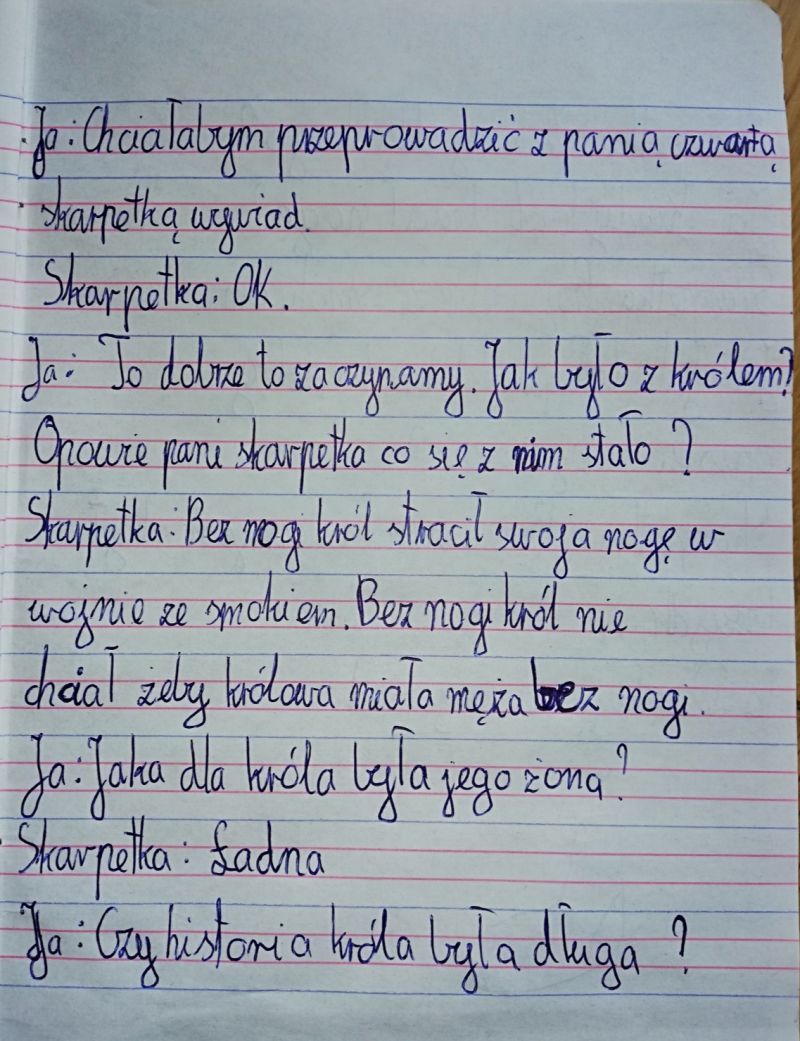 Ja: Chciałabym przeprowadzić z panią czwartą
skarpetką wywiad.
Skarpetka: OK.
Ja: To dobrze to zaczynamy. Jak było z królem?
Opowie pani skarpetka co się z nim stało?
Skarpetka: Bez nogi król stracił swoja nogę w
wojnie ze smokiem. Bez nogi król nie
chciał żeby królowa miała męża bez nogi.
Ja: Jaka dla króla była jego żona?
Skarpetka: Ładna
Ja: Czy historia króla była długa?